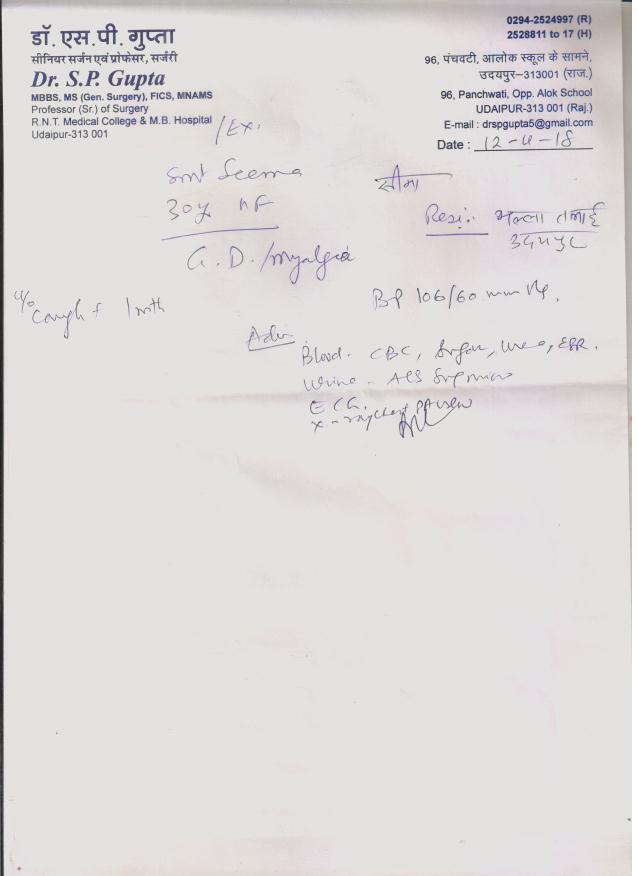 डॉ. एस.पी. गुप्ता
सीनियर सर्जन एवं प्रोफेसर, सर्जरी
Dr. S.P. Gupta
MBBS, MS (Gen. Surgery), FICS, MNAMS
Professor (Sr.) of Surgery
R.N.T. Medical College & M.B. Hospital
Udaipur-313 001
/Ex.
0294-2524997 (R)
2528811 to 17 (H)
96, पंचवटी, आलोक स्कूल के सामने,
उदयपुर–313001 (राज.)
96, Panchwati, Opp. Alok School
UDAIPUR-313 001 (Raj.)
E-mail : drspgupta5@gmail.com
Date : 12-4-18
Smt Seema
सीमा
30y HF
Resi:. मल्ला तलाई
उदयपुर
G.D./Myalgia
c/o
Cough + 1 mth
BP 106/60 mm Hg.
Adv.
Blood - CBC, Sugar, Urea, ESR.
Urine - Alb Sug micro
ECG.
X-ray chest PA view